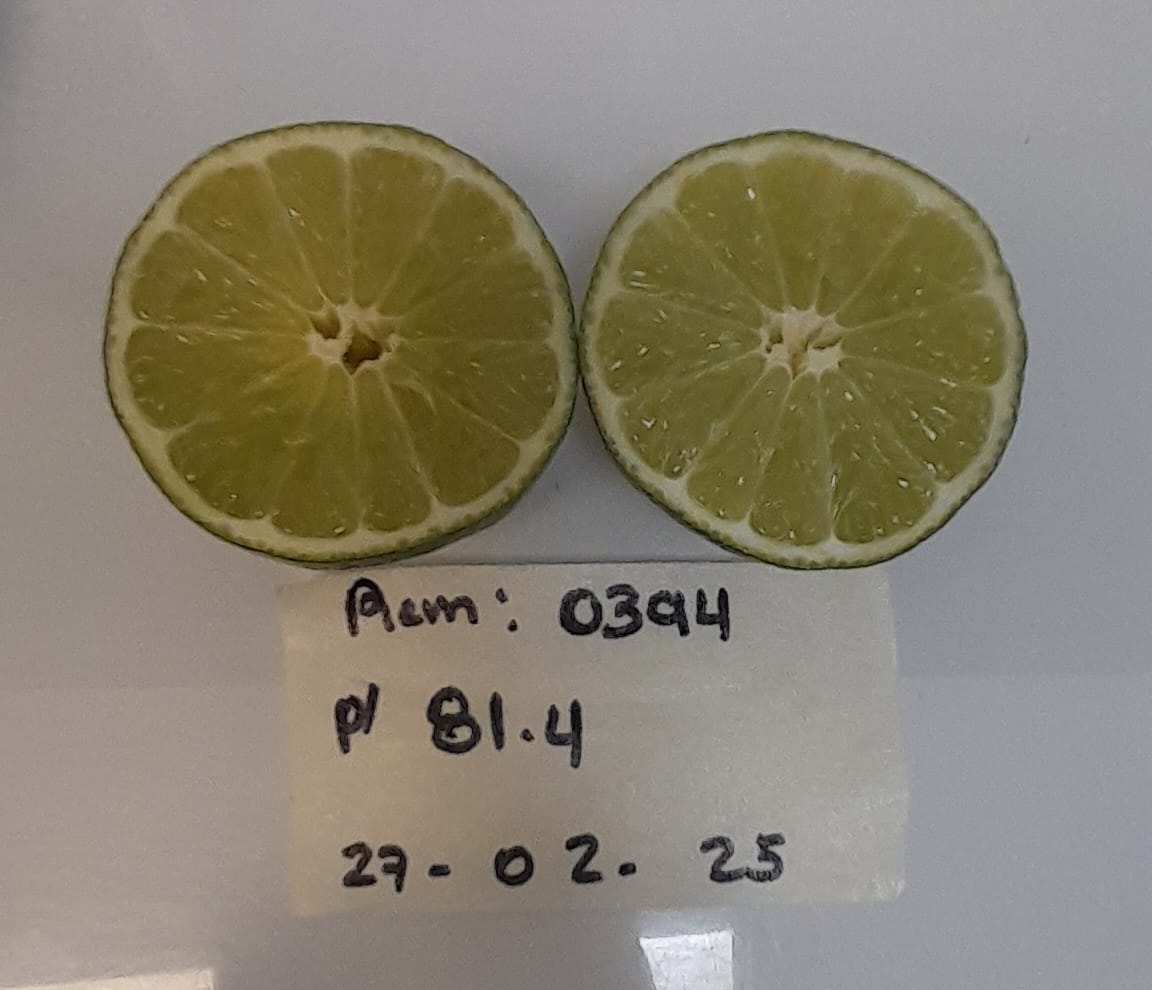 Rem: 0394
p/ 81.4
27- 02. 25